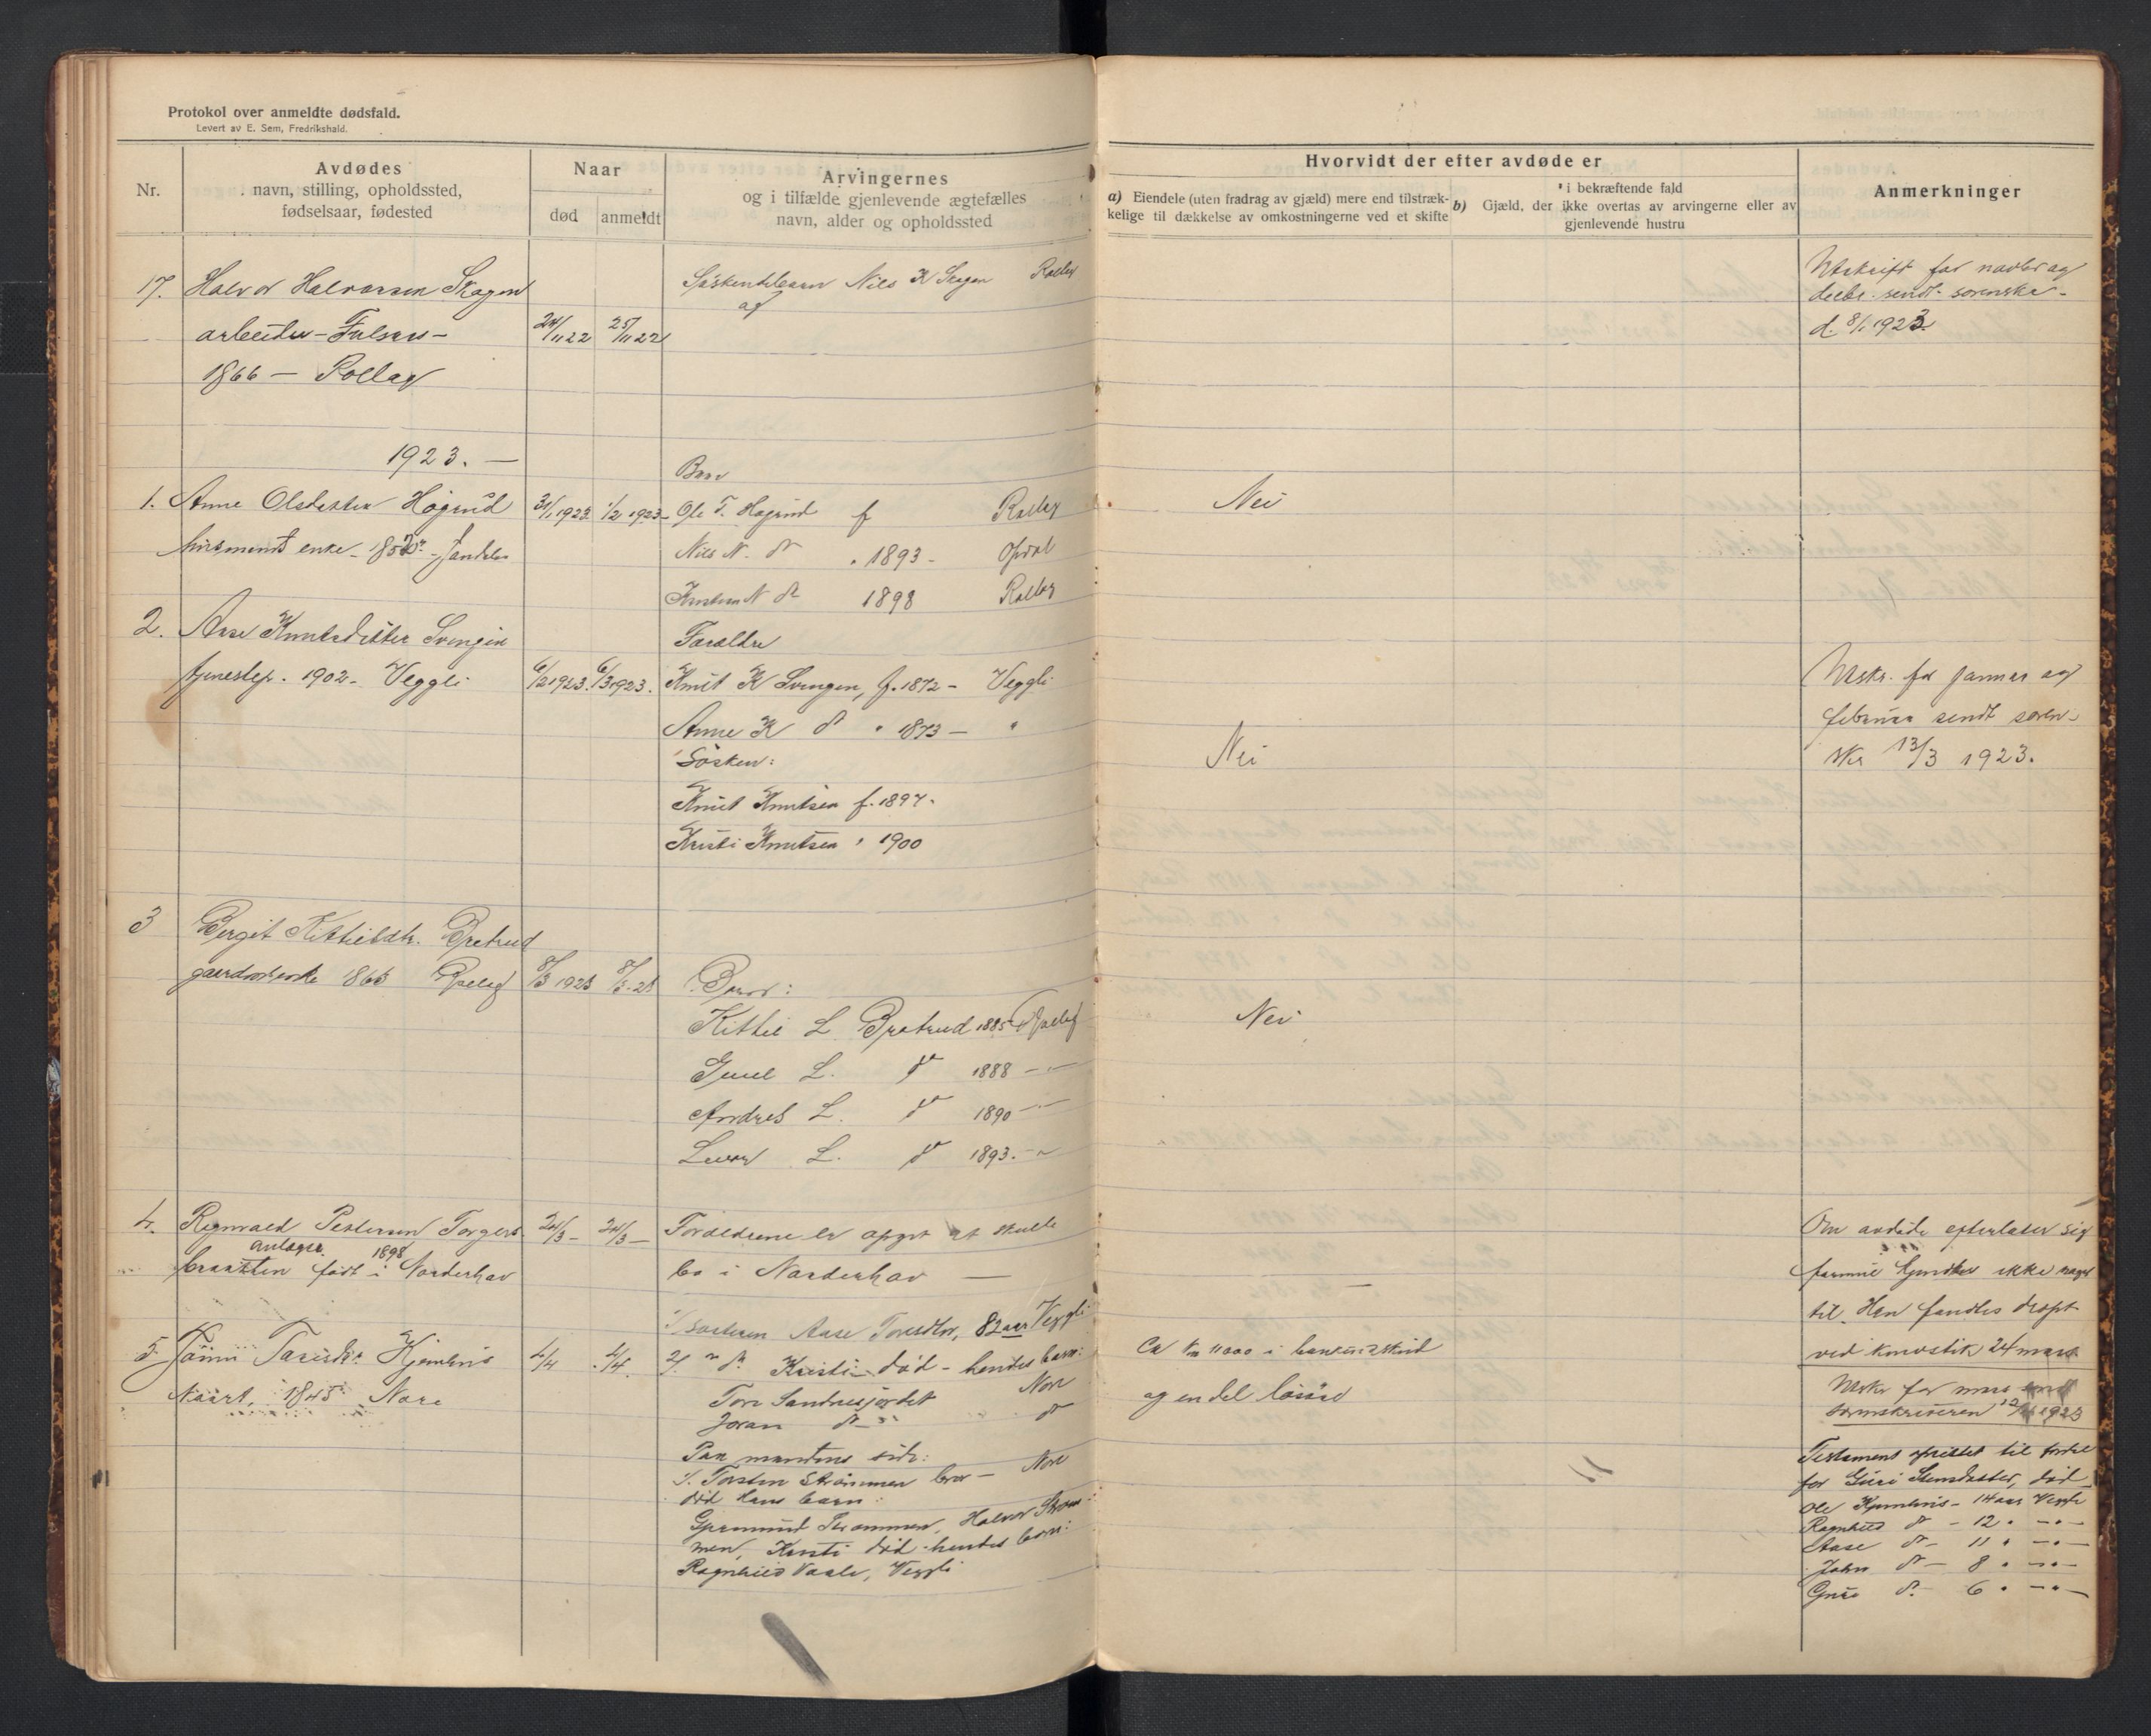 Protokol over anmeldte dødsfald.
Levert av E. Sem, Fredrikshald.
Nr.
Avdødes
navn, stilling, opholdssted,
fødselsaar, fødested
Naar
død
anmeldt
Arvingernes
og i tilfælde gjenlevende ægtefælles
navn, alder og opholdssted
17. Halvor Halvorsen Skagen
arbeider - 
1866 — Rollag
24/11 22 25/11 22
Søskendebarn Nils K Skagen Rollag
1923. —
1. Anne Olsdatter Høgrud
husmands enke -
31/1 1923 1/2 1923
Barn
Ole T. Høgrud f Rollag
Nils N. do . 1893 - Opdal
Kristen N do 1898 Rollag
2. Aase Knutsdatter Svengen
tjenestep. 1902 - Veggli
6/2 1923. 6/3 1923.
Foraldre
Knut K Svengen, f. 1872 - Veggli
Anne K do " 1873 — "
Søsken:
Knut Knutsen f. 1897.
Kristi Knutsen " 1900
3 Bergit Kittilsdtr. Bretrud
Rollag
8/3 1923 8/3-23
Barn:
Kittil L. Bretrud 1885 Rollag
Gunl L. do 1888 - " -
Andres L. do 1890 - " -
L. do 1893. - "
4. Regnvald Pettersen Torgers
antagen 1898
braatten født i Norderhov
24/3 - 24/3 -
Foraldrene er opgit at skulle
bo i Norderhov —
5. Tarisdtr. Kjemhus
1845 Nore
4/4 4/4.
1/ søsteren Aase Toresdtr, 82 aar Veggli
2/. " do Kristi - død - hendes barn:
Tore Sandnesjordet Nore
Joran do do
Paa mandens side:
1. Torsten Strømmen bror - Nore
død Hans barn:
Gjermund Strømmen, Halvor Strøm-
men, Kristi død - hendes barn:
Ragnhild Vaale, Veggli
Hvorvidt der efter avdøde er
a) Eiendele (uten fradrag av gjæld) mere end tilstræk-
kelige til dækkelse av omkostningerne ved et skifte
b)
i bekræftende fald
Gjæld, der ikke overtas av arvingerne eller av
gjenlevende hustru
Anmerkninger
Utskrift for novbr og
decbr. sendt sorenskr.
d. 8/1 1923.
Nei
Utskr. for januar og
februar sendt soren-
skr 13/3 1923.
Nei
Nei
Om avdøde efterlater sig
formue kjendes ikke noget
til. Han fandtes dræpt
ved 24 mars
—
Ca kr 11000 i bankinskud
og en del løsøre
Utskr for mars sendt
sorenskriveren 1923
Testament oprettet til fordel
for Guri død
Ole Kjemhus - 14 aar Veggli
Ragnhild do - 12 " — " —
Aase do - 11 " — " —
John do — 8 " — " —
Guro do - 6 " — " —